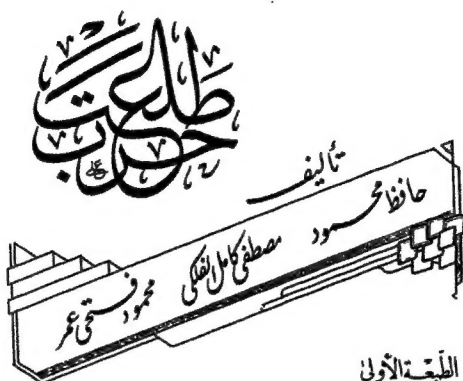 طلعت
حرب
تأليف
حافظ محمود مصطفى كامل الفلكى محمود فتحى عمر
الطبعة الأولى